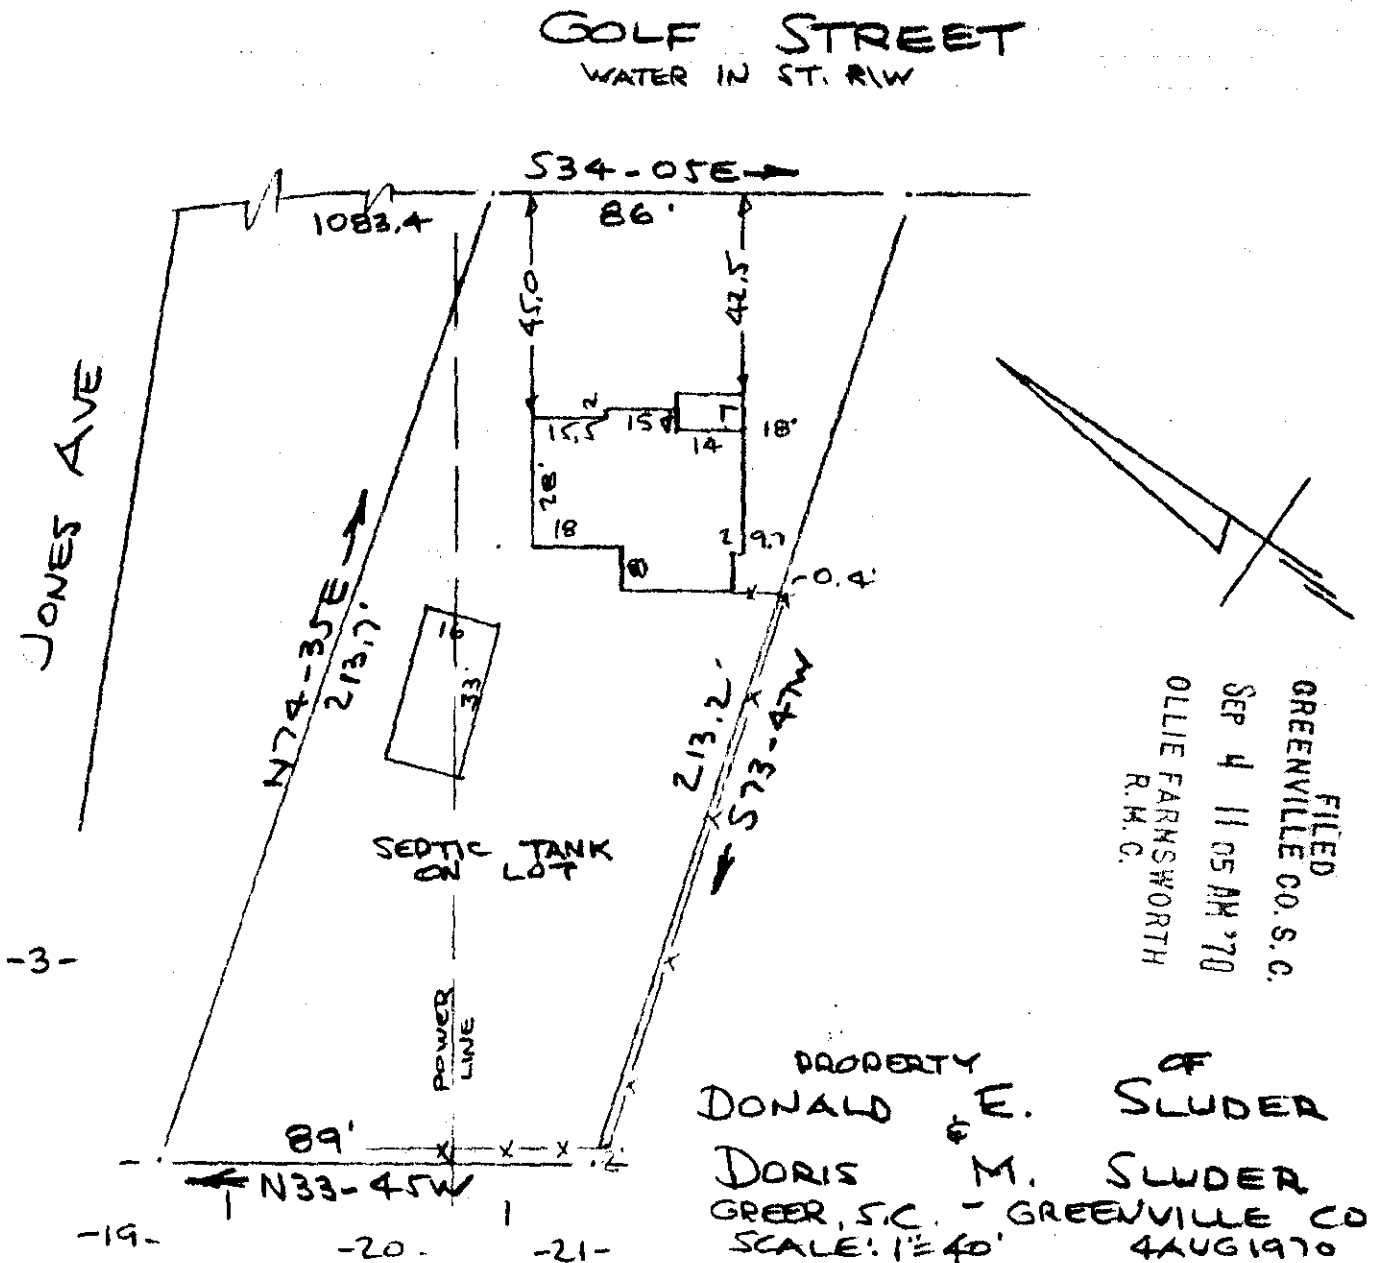 GOLF STREET
WATER IN ST. R\W
S34-05E
1083.4
86'
45.0
42.5
JONES AVE
2
15.5
15
7
14
18'
28'
18
8
2
9.7
-0.4'
N74-35E
213.7'
16
33'
213.2'
S73-47W
SEPTIC TANK
ON LOT
FILED
GREENVILLE CO. S. C.
SEP 4 11 05 AM '70
OLLIE FARNSWORTH
R.M.C.
-3-
POWER
LINE
89'
N33-45W
-19-
-20-
-21-
PROPERTY OF
DONALD E. SLUDER
&
DORIS M. SLUDER
GREER, S.C. - GREENVILLE CO
SCALE: 1"=40' 4AUG1970